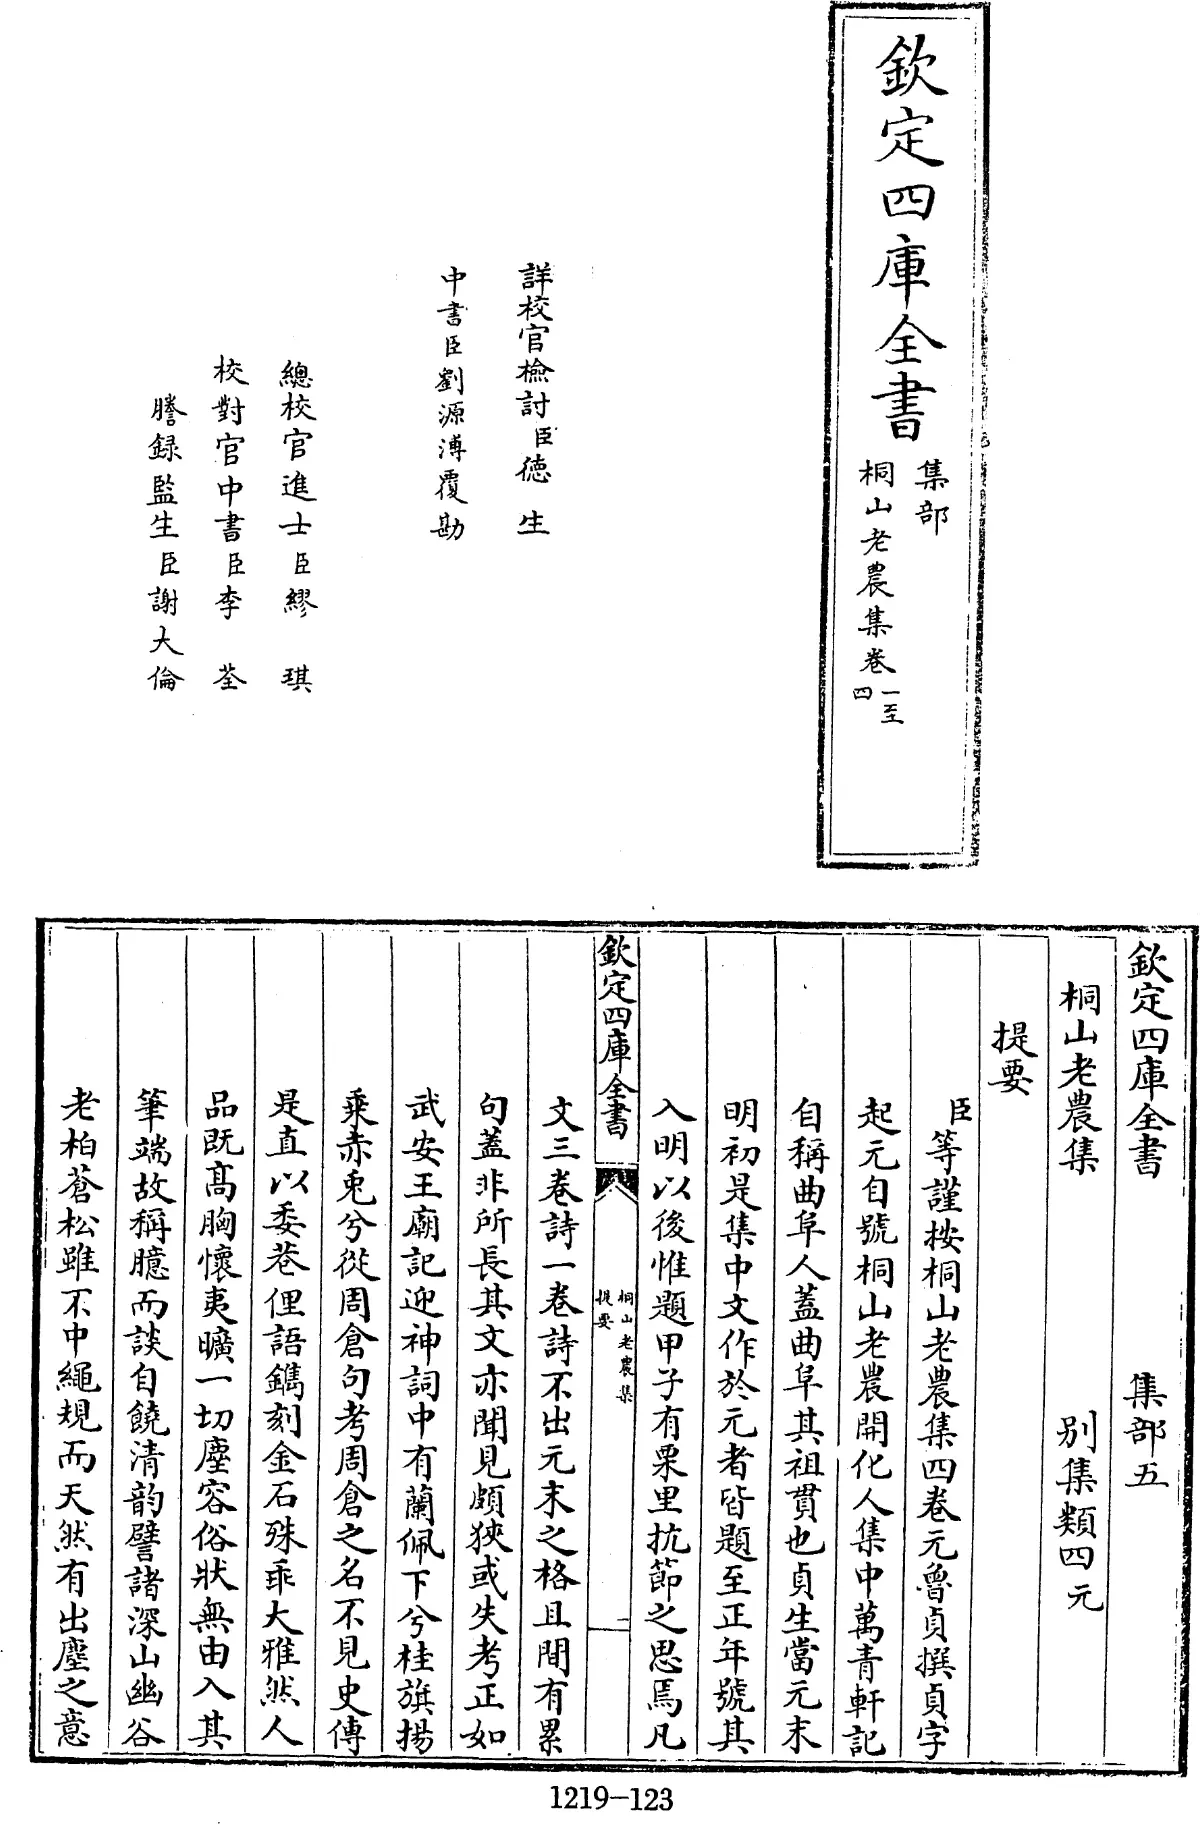 欽定四庫全書
集部
桐山老農集卷一至四
詳校官檢討臣德生
中書臣劉源溥覆勘
總校官進士臣繆琪
校對官中書臣李荃
謄録監生臣謝大倫
欽定四庫全書 集部五
桐山老農集 别集類四元
提要
臣等謹按桐山老農集四卷元魯貞撰貞字
起元自號桐山老農開化人集中萬青軒記
自稱曲阜人蓋曲阜其祖貫也貞生當元末
明初是集中文作於元者皆題至正年號其
入明以後惟題甲子有栗里抗節之思焉凡
欽定四庫全書
桐山老農集
提要
一
文三卷詩一卷詩不出元末之格且間有累
句蓋非所長其文亦聞見頗狹或失考正如
武安王廟記迎神詞中有蘭佩下兮桂旗揚
乘赤兎兮從周倉句考周倉之名不見史傳
是直以委巷俚語鐫刻金石殊乖大雅然人
品既髙胸懷夷曠一切塵容俗狀無由入其
筆端故稱臆而談自饒清韵譬諸深山幽谷
老柏蒼松雖不中繩規而天然有出塵之意
1219-123